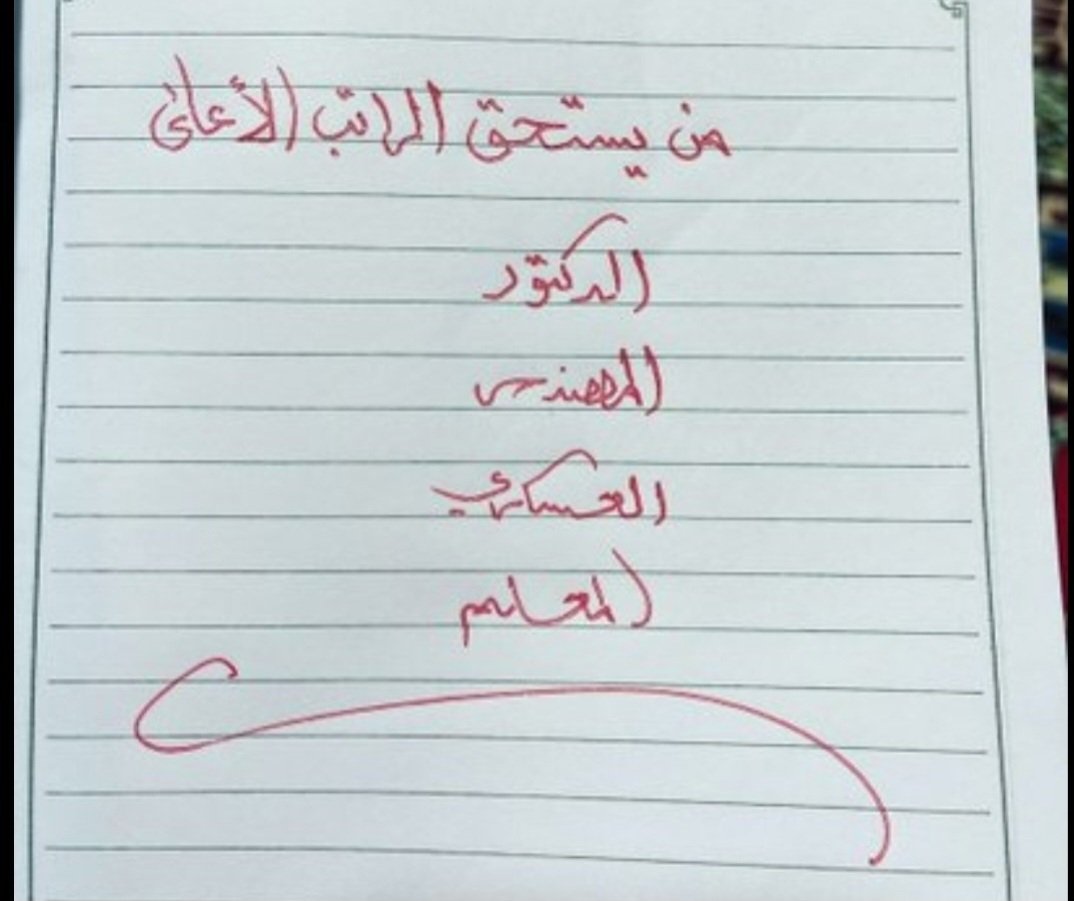 من يستحق الراتب الأعلى
الدكتور
المهندس
العسكري
المعلم